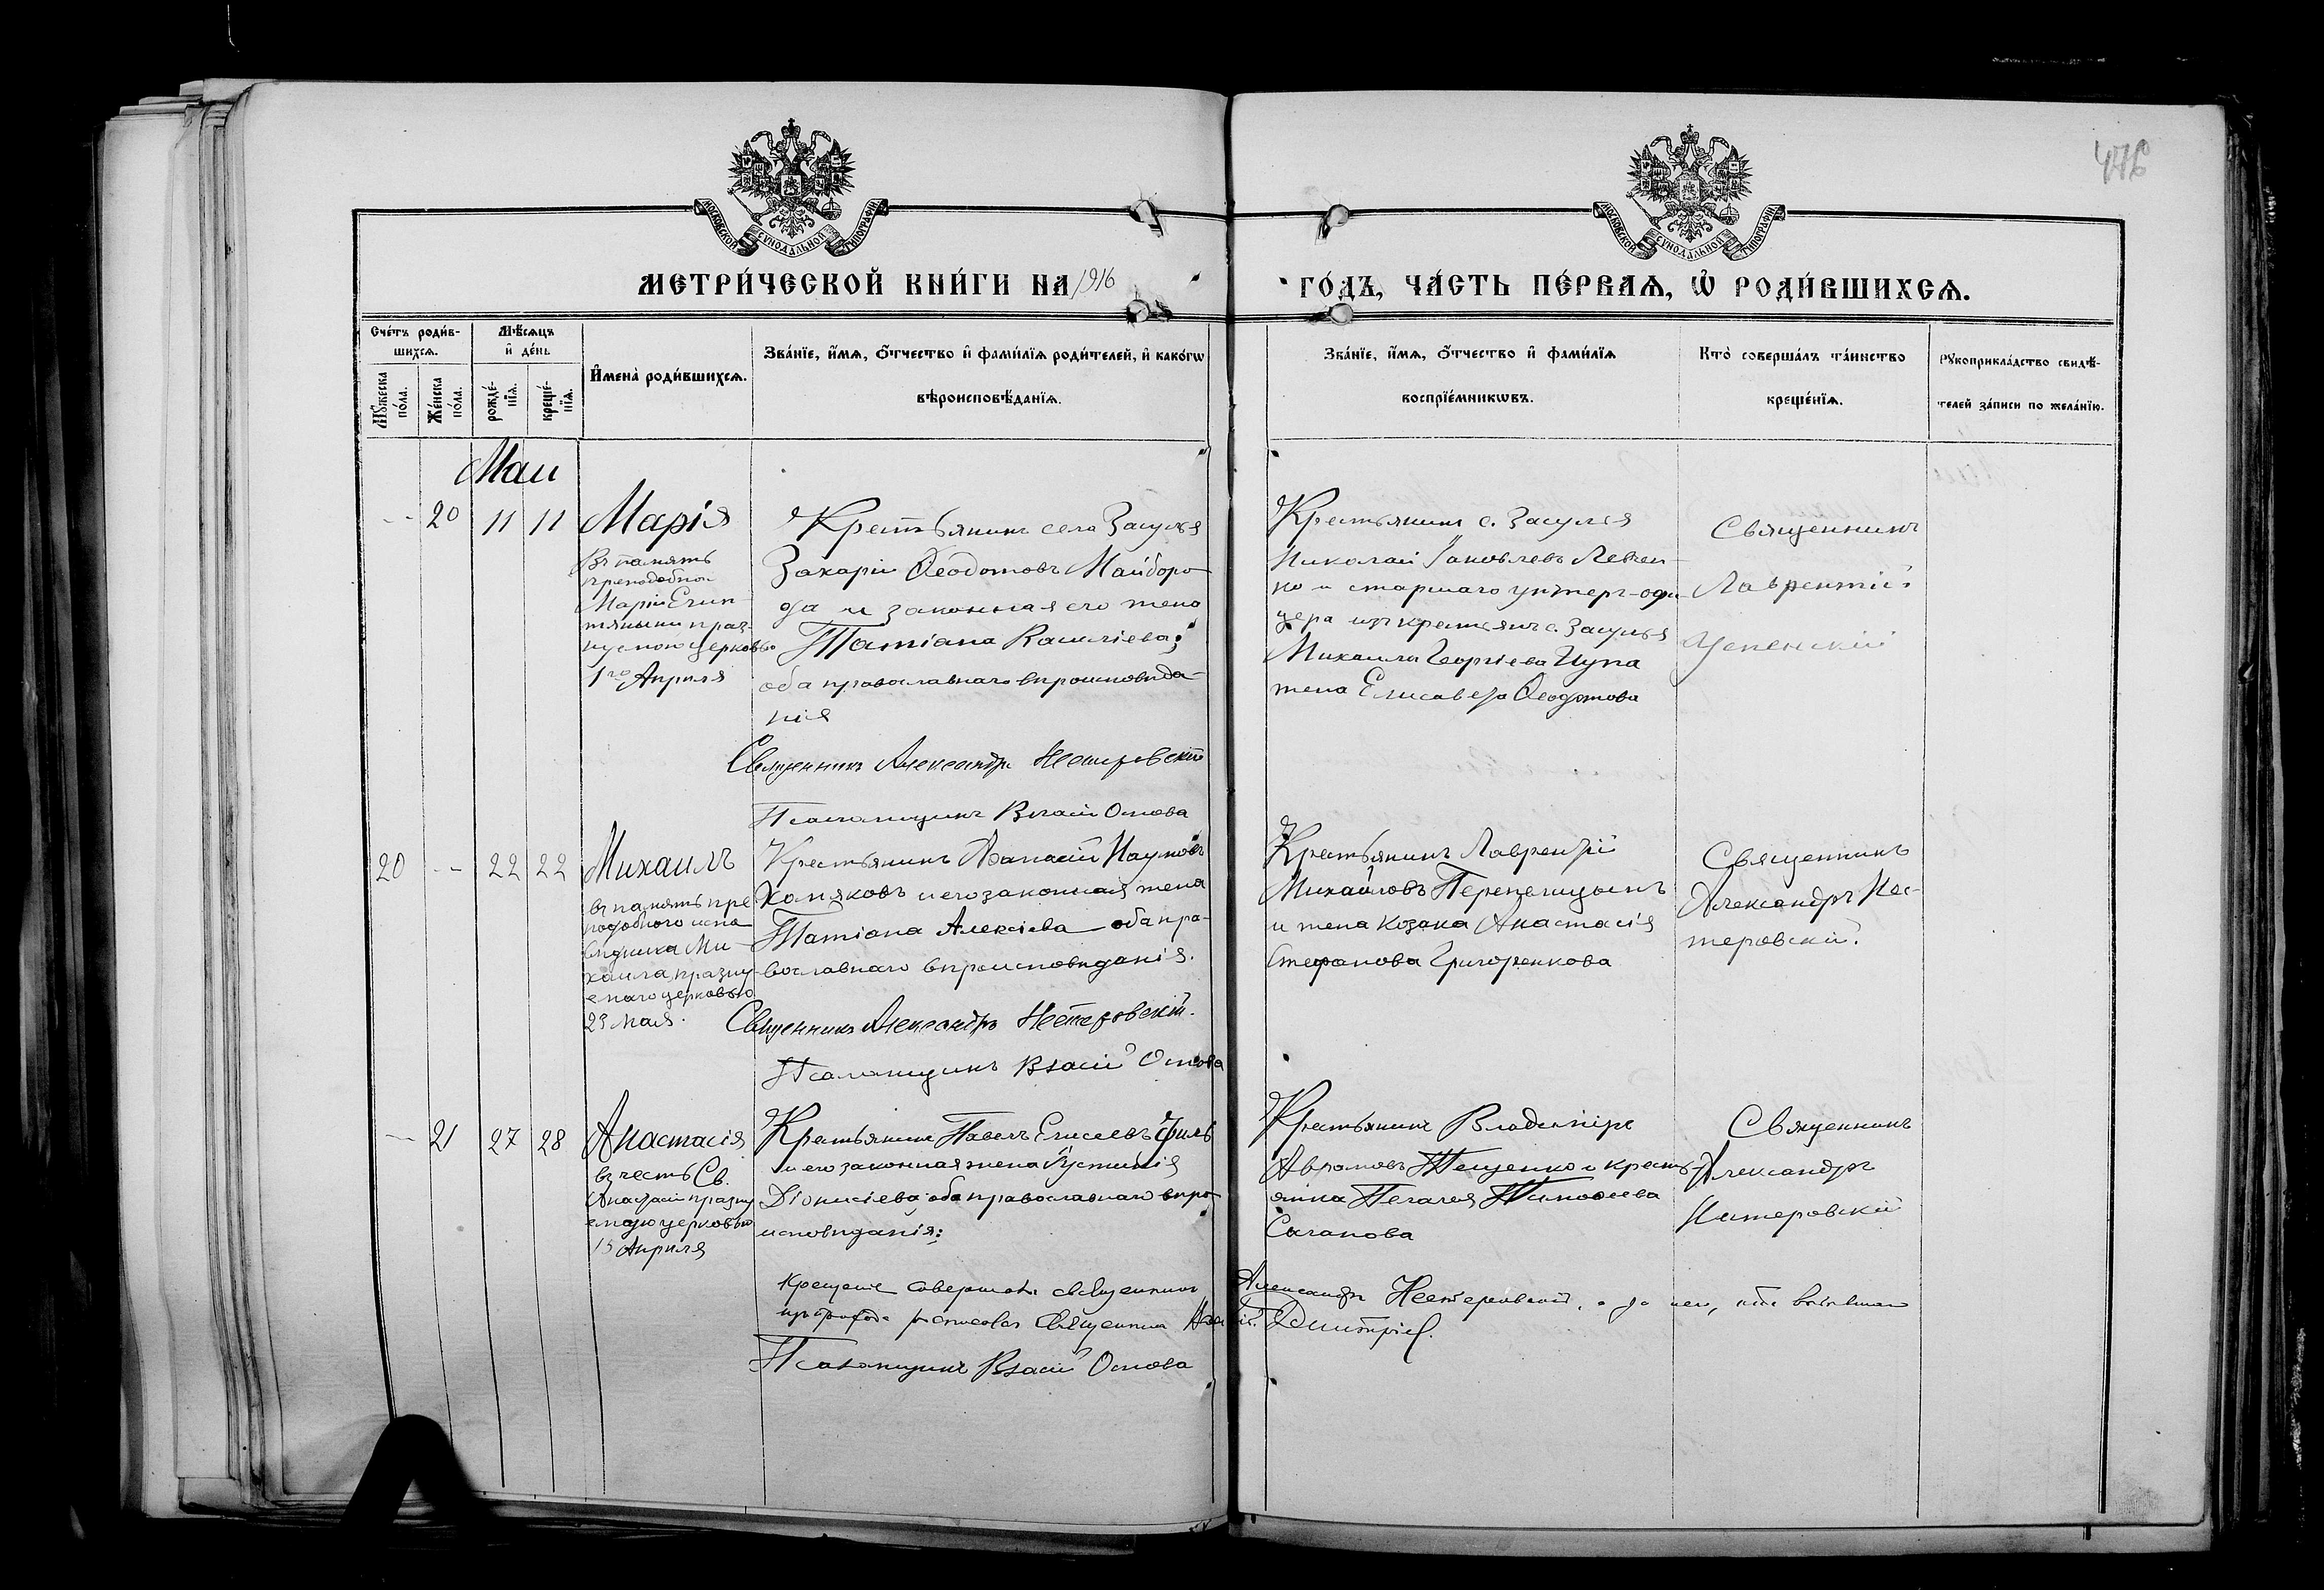 476
МОСКОВСКОЙ СУНОДАЛЬНОЙ ТИПОГРАФІИ
МОСКОВСКОЙ СУНОДАЛЬНОЙ ТИПОГРАФІИ
МЕТРИ́ЧЕСКОЙ КНИ́ГИ НА 1916
ГО́ДЪ, ЧА́СТЬ ПЕ́РВАѦ, Ѡ҆ РОДИ́ВШИХСѦ.
Сче́тъ роди́в-
шихсѧ.
Мѣ́сѧцъ
и҆ де́нь
Мꙋ́жеска по́ла.
Же́нска по́ла.
рожде́-
нїѧ.
креще́-
нїѧ.
И҆мена̀ роди́вшихсѧ.
Зва́нїе, и҆́мѧ, ѻ҆́тчество и҆ фами́лїѧ роди́телей, и҆ како́гѡ
вѣроисповѣ́данїѧ.
Зва́нїе, и҆́мѧ, ѻ҆́тчество и҆ фами́лїѧ
воспрїе́мникѡвъ.
Кто̀ соверша́лъ та́инство
креще́нїѧ.
Рꙋкоприкла́дство свидѣ́-
телей за́писи по жела́нїю.
Маи
-- 20 11 11 Марія
Въ память
преподобной
Маріи Египт
тяныни праз-
нуемой церковью
1го Апреля
Крестьянинъ села Засулья
Захарій Ѳеодотовъ Майборо-
да и законная его жена
Татіана Василіева;
оба православнаго вѣроисповѣда-
нія
Священникъ Александръ Нестеровскій
Псаломщикъ Власій Остова
Крестьянинъ с. Засулья
Николай Яковлевъ Левчен-
ко и старшаго унтеръ-офи-
цера изъ крестьянъ с. Засулья
Михаила Георгіева Цупа
жена Елисавета Ѳеодотова
Священникъ
Лаврентій
Успенскій
20 -- 22 22 Михаилъ
въ память пре
подобного испо
ведника Ми-
хаила, празну-
емаго церковью
23 мая.
Крестьянинъ Аѳанасій Наумовъ
Хомяковъ и его законная жена
Татіана Алексіева оба пра-
вославнаго вѣроисповѣданія.
Священникъ Александръ Нестеровскій.
Псаломщикъ Власій Остова
Крестьянинъ Лаврентій
Михайловъ Перепелицынъ
и жена козака Анастасія
Стефанова Григоренкова
Священникъ
Александръ Нес-
теровскій.
-- 21 27 28 Анастасія
въ честь Св.
Анастасіи празну
емую церковью
15 Апреля
Крестьянинъ Павелъ Елисеевъ Филь
и его законная жена Іустинія
Діонисіева оба православнаго вѣро-
исповѣданія:
Крестьянинъ Владиміръ
Аврамовъ Тещенко и кресть-
янка Пелагея Тимоѳеева
Саганова
Священникъ
Александръ
Нестеровскій
Крещеніе совершалъ священникъ Александръ Нестеровскій, а за него,
священникъ Димитрі
Псаломщикъ Власій Остова